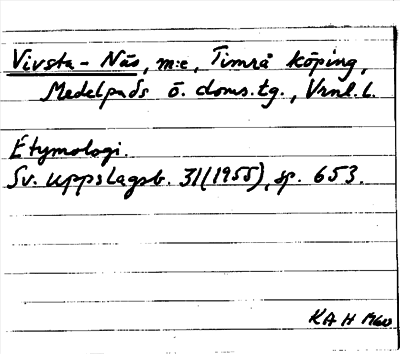 Vivsta-Näs, m:e, Timrå köping,
Medelpads ö. doms.tg., Vrnl. l.
Etymologi.
Sv. uppslagsb. 31(1955), sp. 653.
KAH